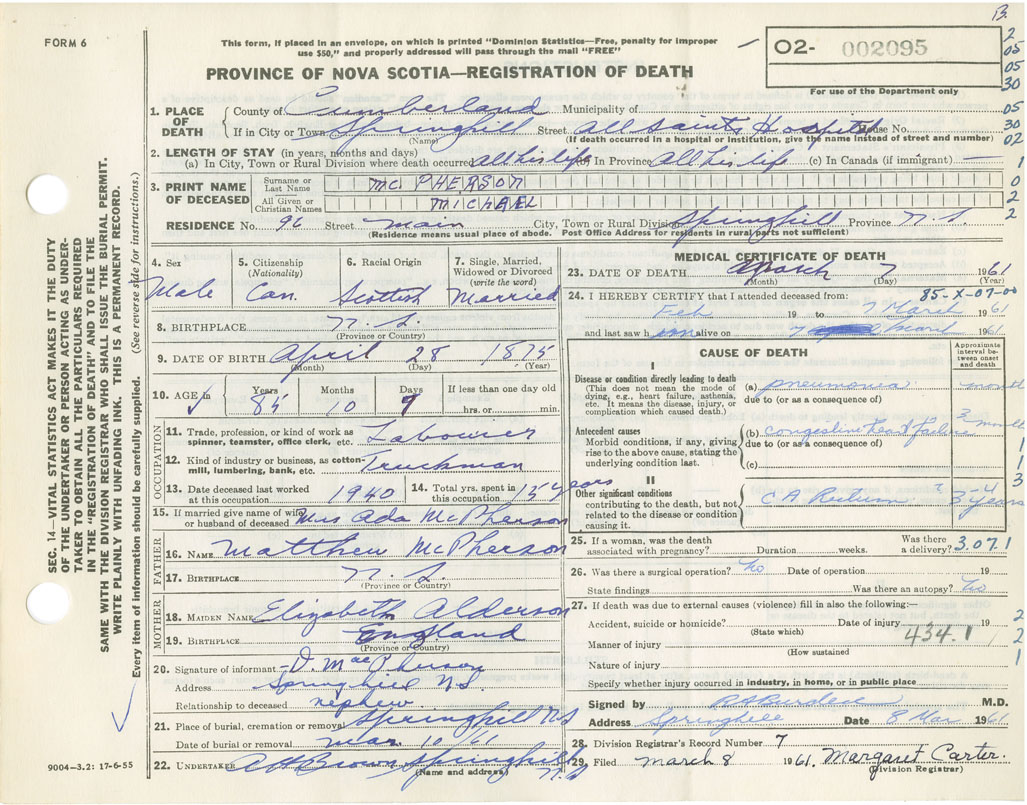 B.
FORM 6
This form, if placed in an envelope, on which is printed "Dominion Statistics—Free, penalty for improper
use $50," and properly addressed will pass through the mail "FREE"
O2- 002095
For use of the Department only
PROVINCE OF NOVA SCOTIA—REGISTRATION OF DEATH
2
05
05
30
05
30
02
1
0
2
2
SEC. 14—VITAL STATISTICS ACT MAKES IT THE DUTY
OF THE UNDERTAKER OR PERSON ACTING AS UNDER-
TAKER TO OBTAIN ALL THE PARTICULARS REQUIRED
IN THE "REGISTRATION OF DEATH" AND TO FILE THE
SAME WITH THE DIVISION REGISTRAR WHO SHALL ISSUE THE BURIAL PERMIT.
WRITE PLAINLY WITH UNFADING INK. THIS IS A PERMANENT RECORD.
Every item of information should be carefully supplied. (See reverse side for instructions.)
1. PLACE OF DEATH
County of Cumberland Municipality of
If in City or Town Springhill Street All Saints Hospital House No.
(Name) (If death occurred in a hospital or institution, give the name instead of street and number)
2. LENGTH OF STAY (in years, months and days)
(a) In City, Town or Rural Division where death occurred all his life (b) In Province all his life (c) In Canada (if immigrant) —
3. PRINT NAME OF DECEASED
Surname or Last Name MC PHERSON
All Given or Christian Names MICHAEL
RESIDENCE No. 96 Street main City, Town or Rural Division Springhill Province N.S.
(Residence means usual place of abode. Post Office Address for residents in rural parts not sufficient)
4. Sex Male
5. Citizenship (Nationality) Can.
6. Racial Origin Scottish
7. Single, Married, Widowed or Divorced (write the word) Married
8. BIRTHPLACE N.S.
(Province or Country)
9. DATE OF BIRTH April 28 1875
(Month) (Day) (Year)
10. AGE in Years 85 Months 10 Days 9 If less than one day old hrs. or min.
OCCUPATION
11. Trade, profession, or kind of work as spinner, teamster, office clerk, etc. Labourer
12. Kind of industry or business, as cotton-mill, lumbering, bank, etc. Truckman
13. Date deceased last worked at this occupation 1940
14. Total yrs. spent in this occupation 15 years
15. If married give name of wife or husband of deceased Mrs Ada McPherson
FATHER
16. NAME Matthew McPherson
17. BIRTHPLACE N.S.
(Province or Country)
MOTHER
18. MAIDEN NAME Elizabeth Alderson
19. BIRTHPLACE England
(Province or Country)
20. Signature of informant D. MacPherson
Address Springhill N.S.
Relationship to deceased nephew
21. Place of burial, cremation or removal Springhill N.S
Date of burial or removal Mar 10 61
22. UNDERTAKER A H Brown Springhill N.S
(Name and address)
9004—3.2: 17-6-55
MEDICAL CERTIFICATE OF DEATH
23. DATE OF DEATH March 7 1961
(Month) (Day) (Year)
24. I HEREBY CERTIFY that I attended deceased from: 85-X-07-00
Feb 19 to 7 March 1961
and last saw h im alive on 7 March 1961
CAUSE OF DEATH
Approximate interval between onset and death
I
Disease or condition directly leading to death
(This does not mean the mode of dying, e.g., heart failure, asthenia, etc. It means the disease, injury, or complication which caused death.)
(a) pneumonia month
due to (or as a consequence of)
Antecedent causes
Morbid conditions, if any, giving rise to the above cause, stating the underlying condition last.
(b) congestive heart failure 3 months
due to (or as a consequence of)
(c)
1
1
3
II
Other significant conditions
contributing to the death, but not related to the disease or condition causing it.
C A Rectum 3-4 years
25. If a woman, was the death associated with pregnancy? Duration weeks. Was there a delivery? 3.07.1
26. Was there a surgical operation? No Date of operation 19
State findings Was there an autopsy? No
27. If death was due to external causes (violence) fill in also the following:—
Accident, suicide or homicide? Date of injury 19
(State which) 434.1
Manner of injury
(How sustained
Nature of injury
2
2
1
Specify whether injury occurred in industry, in home, or in public place
Signed by M.D.
Address Springhill Date 8 Mar 1961
28. Division Registrar's Record Number 7
29. Filed March 8 1961. Margaret Carter.
(Division Registrar)